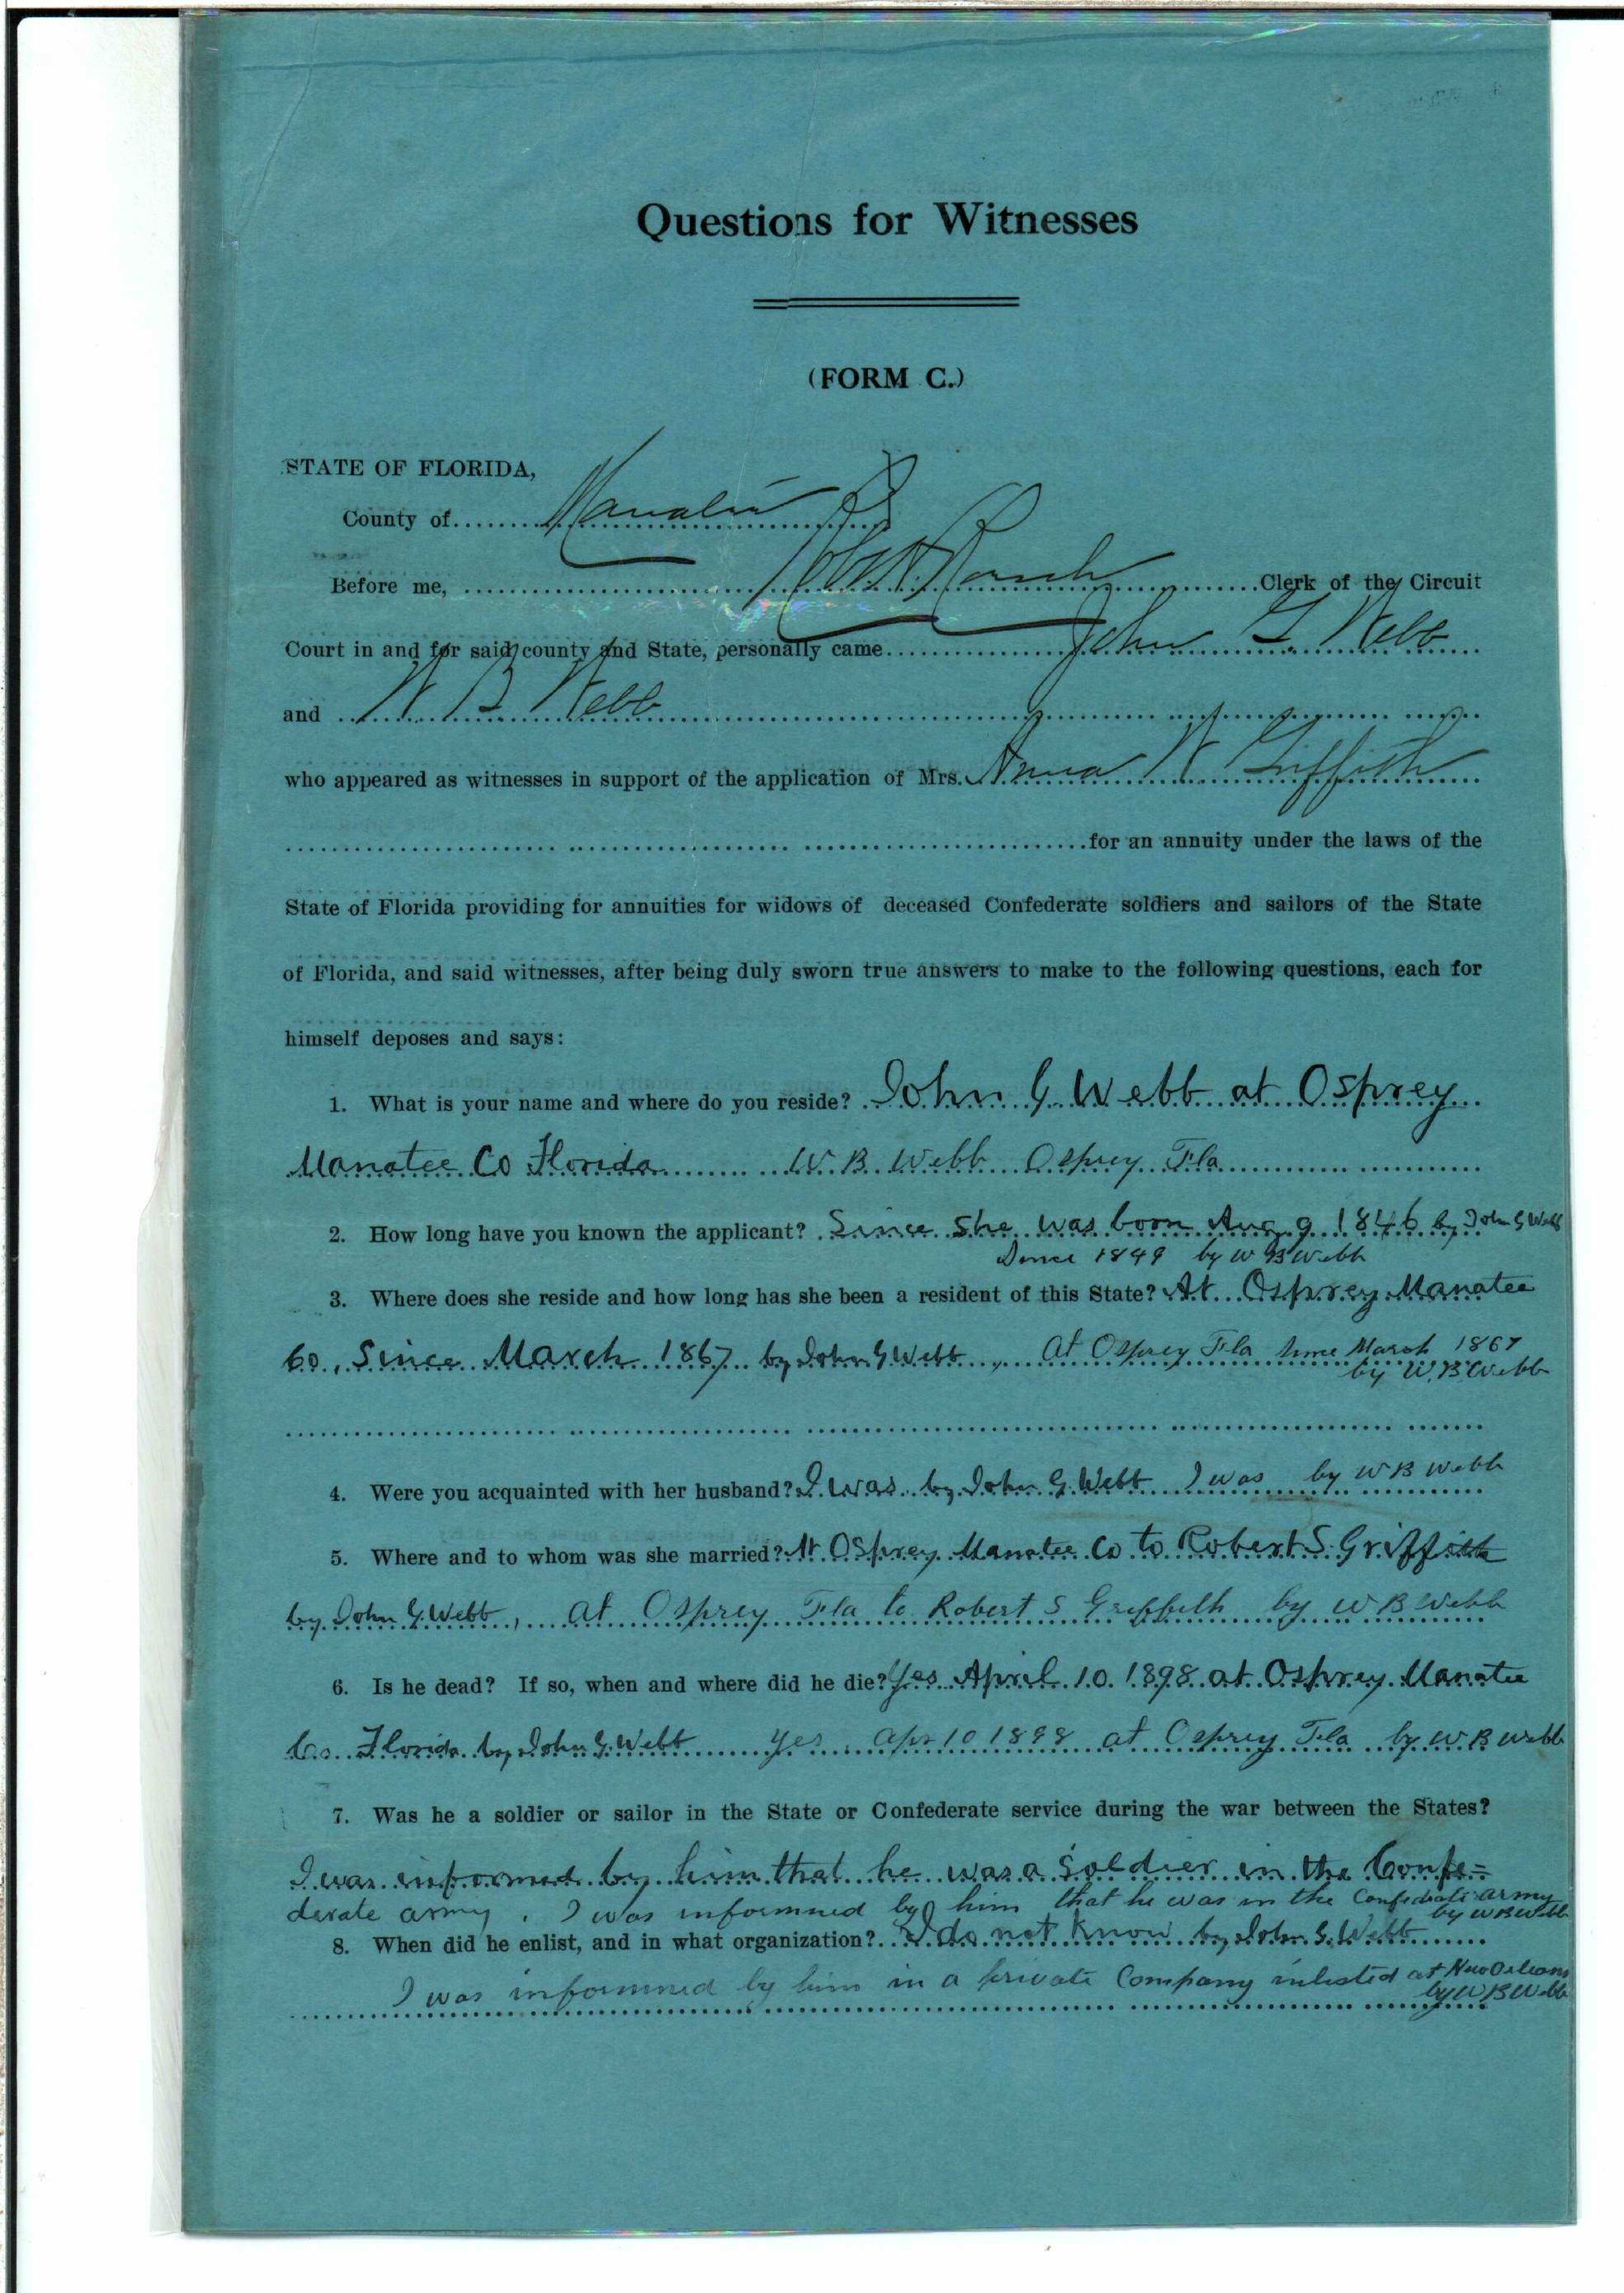 Questions for Witnesses
(FORM C.)
STATE OF FLORIDA,
County of Manatee
Before me, Robt. H. Roesch Clerk of the Circuit
Court in and for said county and State, personally came John G. Webb
and W B Webb
who appeared as witnesses in support of the application of Mrs. Anna W Griffith
for an annuity under the laws of the
State of Florida providing for annuities for widows of deceased Confederate soldiers and sailors of the State
of Florida, and said witnesses, after being duly sworn true answers to make to the following questions, each for
himself deposes and says:
1. What is your name and where do you reside? John G Webb at Osprey
Manatee Co Florida W. B. Webb Osprey Fla
2. How long have you known the applicant? Since she was born Aug 9 1846 by John G Webb
Since 1849 by W B Webb
3. Where does she reside and how long has she been a resident of this State? At Osprey Manatee
Co., Since March 1867 by John G Webb, At Osprey Fla since March 1867
by W. B. Webb
4. Were you acquainted with her husband? I was by John G. Webb I was by W B Webb
5. Where and to whom was she married? At Osprey Manatee Co to Robert S. Griffith
by John G. Webb, at Osprey Fla to Robert S Griffith by W B Webb
6. Is he dead? If so, when and where did he die? Yes April 10. 1898 at Osprey Manatee
Co. Florida by John G. Webb Yes Apr 10 1898 at Osprey Fla by W B Webb
7. Was he a soldier or sailor in the State or Confederate service during the war between the States?
I was informed by him that he was a soldier in the Confe=
derate army. I was informed by him that he was in the Confederate army
by W B Webb
8. When did he enlist, and in what organization? I do not know by John G. Webb
I was informed by him in a private Company inlisted at New Orleans
by W B Webb